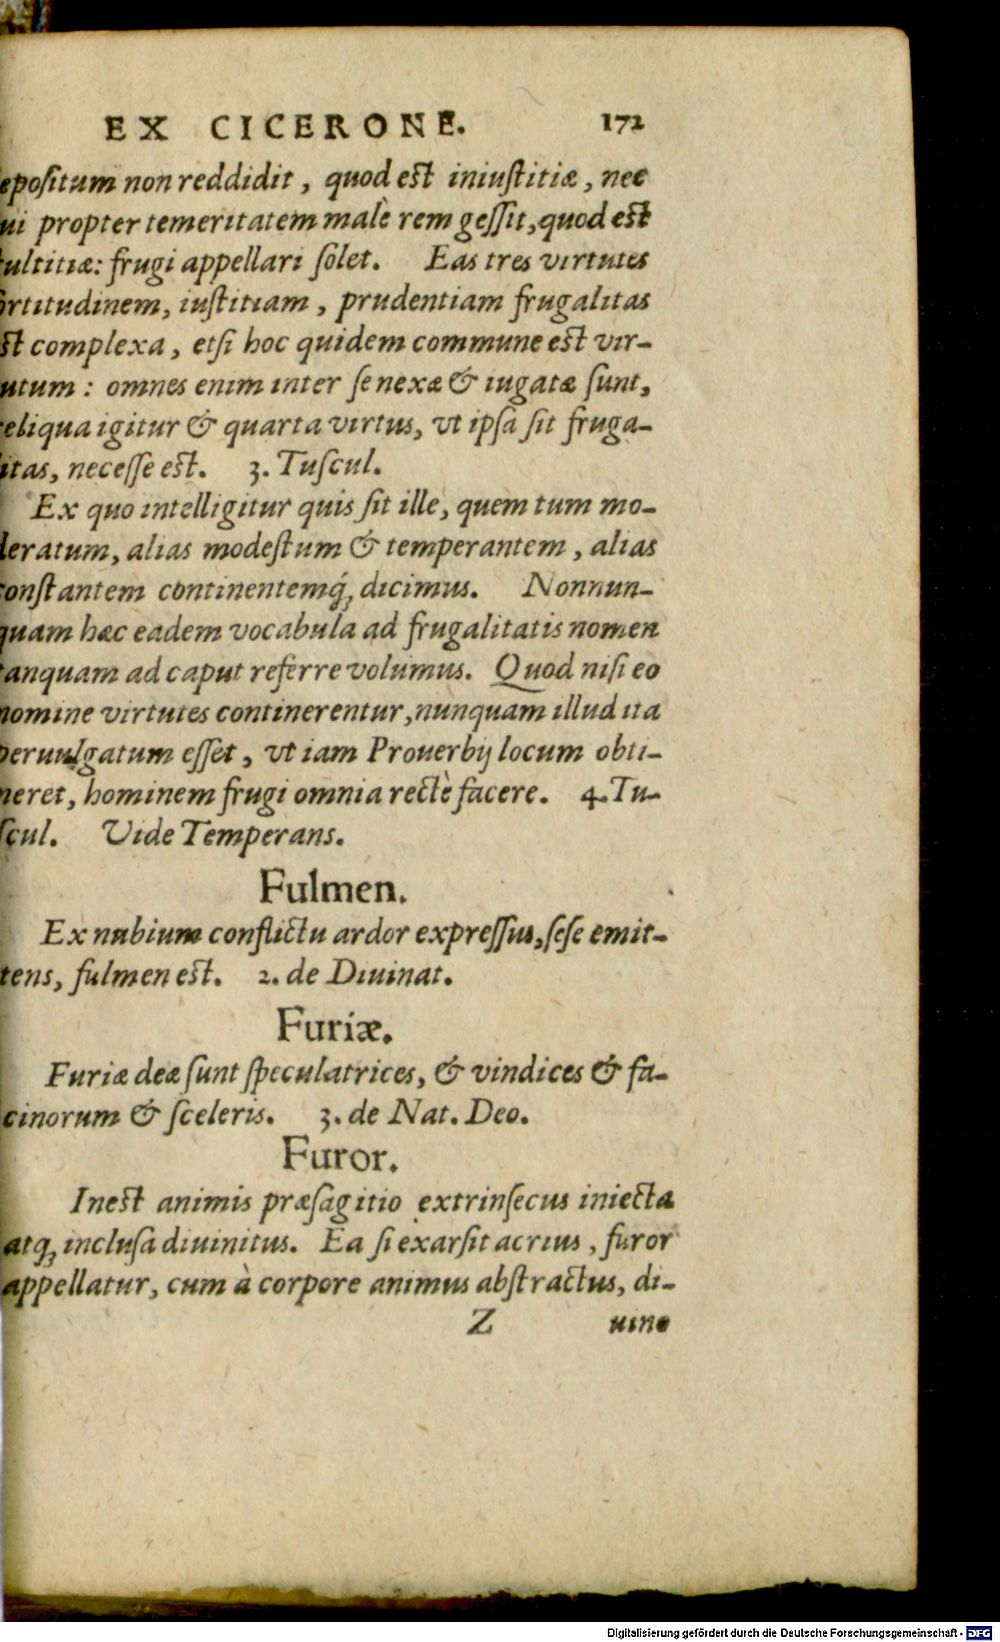 EX CICERONE. 172
epositum non reddidit, quod est iniustitiæ, nec
ui propter temeritatem malè rem gessit, quod est
tultitiæ: frugi appellari solet. Eas tres virtutes
ortitudinem, iustitiam, prudentiam frugalitas
st complexa, etsi hoc quidem commune est vir-
utum: omnes enim inter se nexæ & iugatæ sunt,
reliqua igitur & quarta virtus, vt ipsa sit fruga-
litas, necesse est. 3. Tuscul.
Ex quo intelligitur quis sit ille, quem tum mo-
deratum, alias modestum & temperantem, alias
constantem continentemq́; dicimus. Nonnun-
quam hæc eadem vocabula ad frugalitatis nomen
tanquam ad caput referre volumus. Quod nisi eo
nomine virtutes continerentur, nunquam illud ita
peruulgatum esset, vt iam Prouerbij locum obti-
neret, hominem frugi omnia rectè facere. 4. Tu-
scul. Vide Temperans.
Fulmen.
Ex nubium conflictu ardor expressus, sese emit-
tens, fulmen est. 2. de Diuinat.
Furiæ.
Furiæ deæ sunt speculatrices, & vindices & fa-
cinorum & sceleris. 3. de Nat. Deo.
Furor.
Inest animis præsagitio extrinsecus iniecta
atq; inclusa diuinitus. Ea si exarsit acrius, furor
appellatur, cum à corpore animus abstractus, di-
Z uino
Digitalisierung gefördert durch die Deutsche Forschungsgemeinschaft - DFG